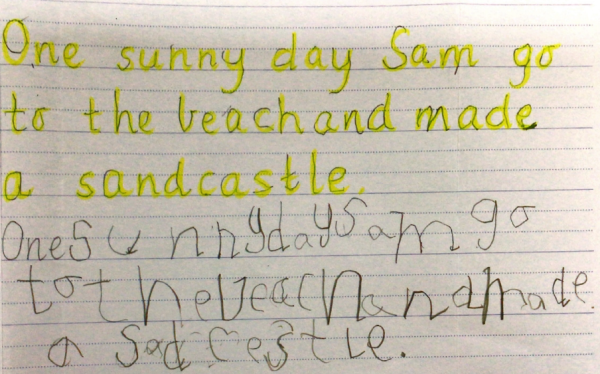 One sunny day Sam go
to the beach and made
a sandcastle.
One Sunny day Sam go
to the beach and made
a Sad cestle.